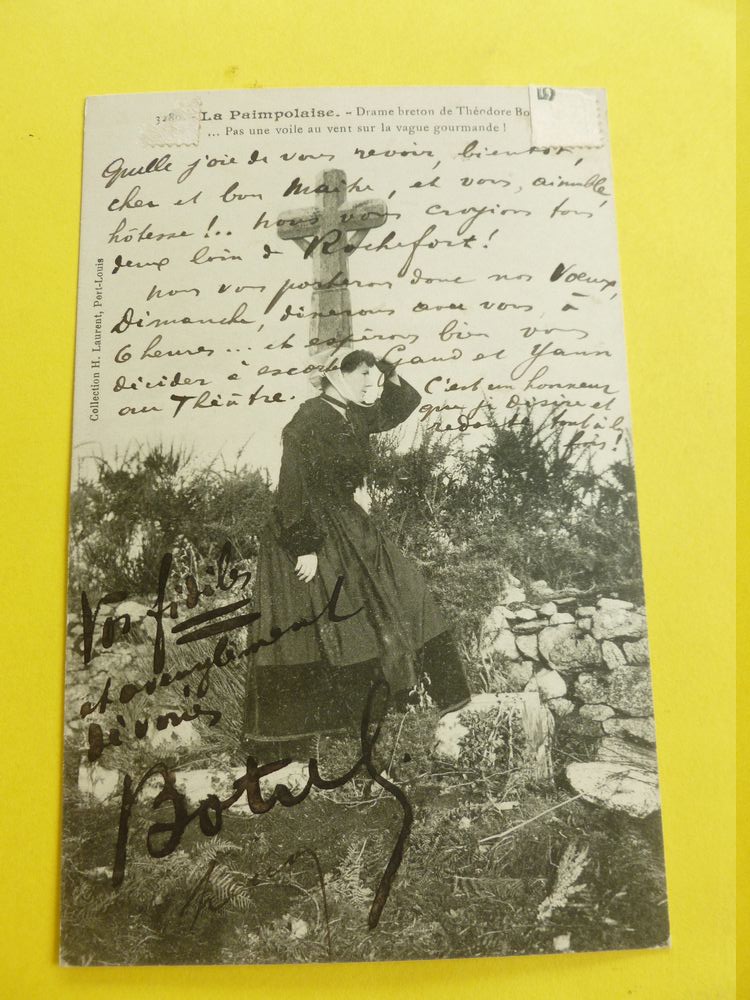 3280. - La Paimpolaise. - Drame breton de Théodore Bo
... Pas une voile au vent sur la vague gourmande !
5
Quelle joie de vous revoir, bientôt,
cher et bon Maître, et vous, aimable
hôtesse !.. nous vous croyions tous
deux loin de Rochefort !
nous vous porterons donc nos Vœux,
Dimanche, dînerons avec vous, à
6 heures... et espérons bien vous
décider à escorter Gaud et Yann
au Théâtre.
C'est un honneur
que je désire et
redoute tout à la
fois !
Collection H. Laurent, Port-Louis
Vos fidèles
et aveuglément
dévoués
Botrel